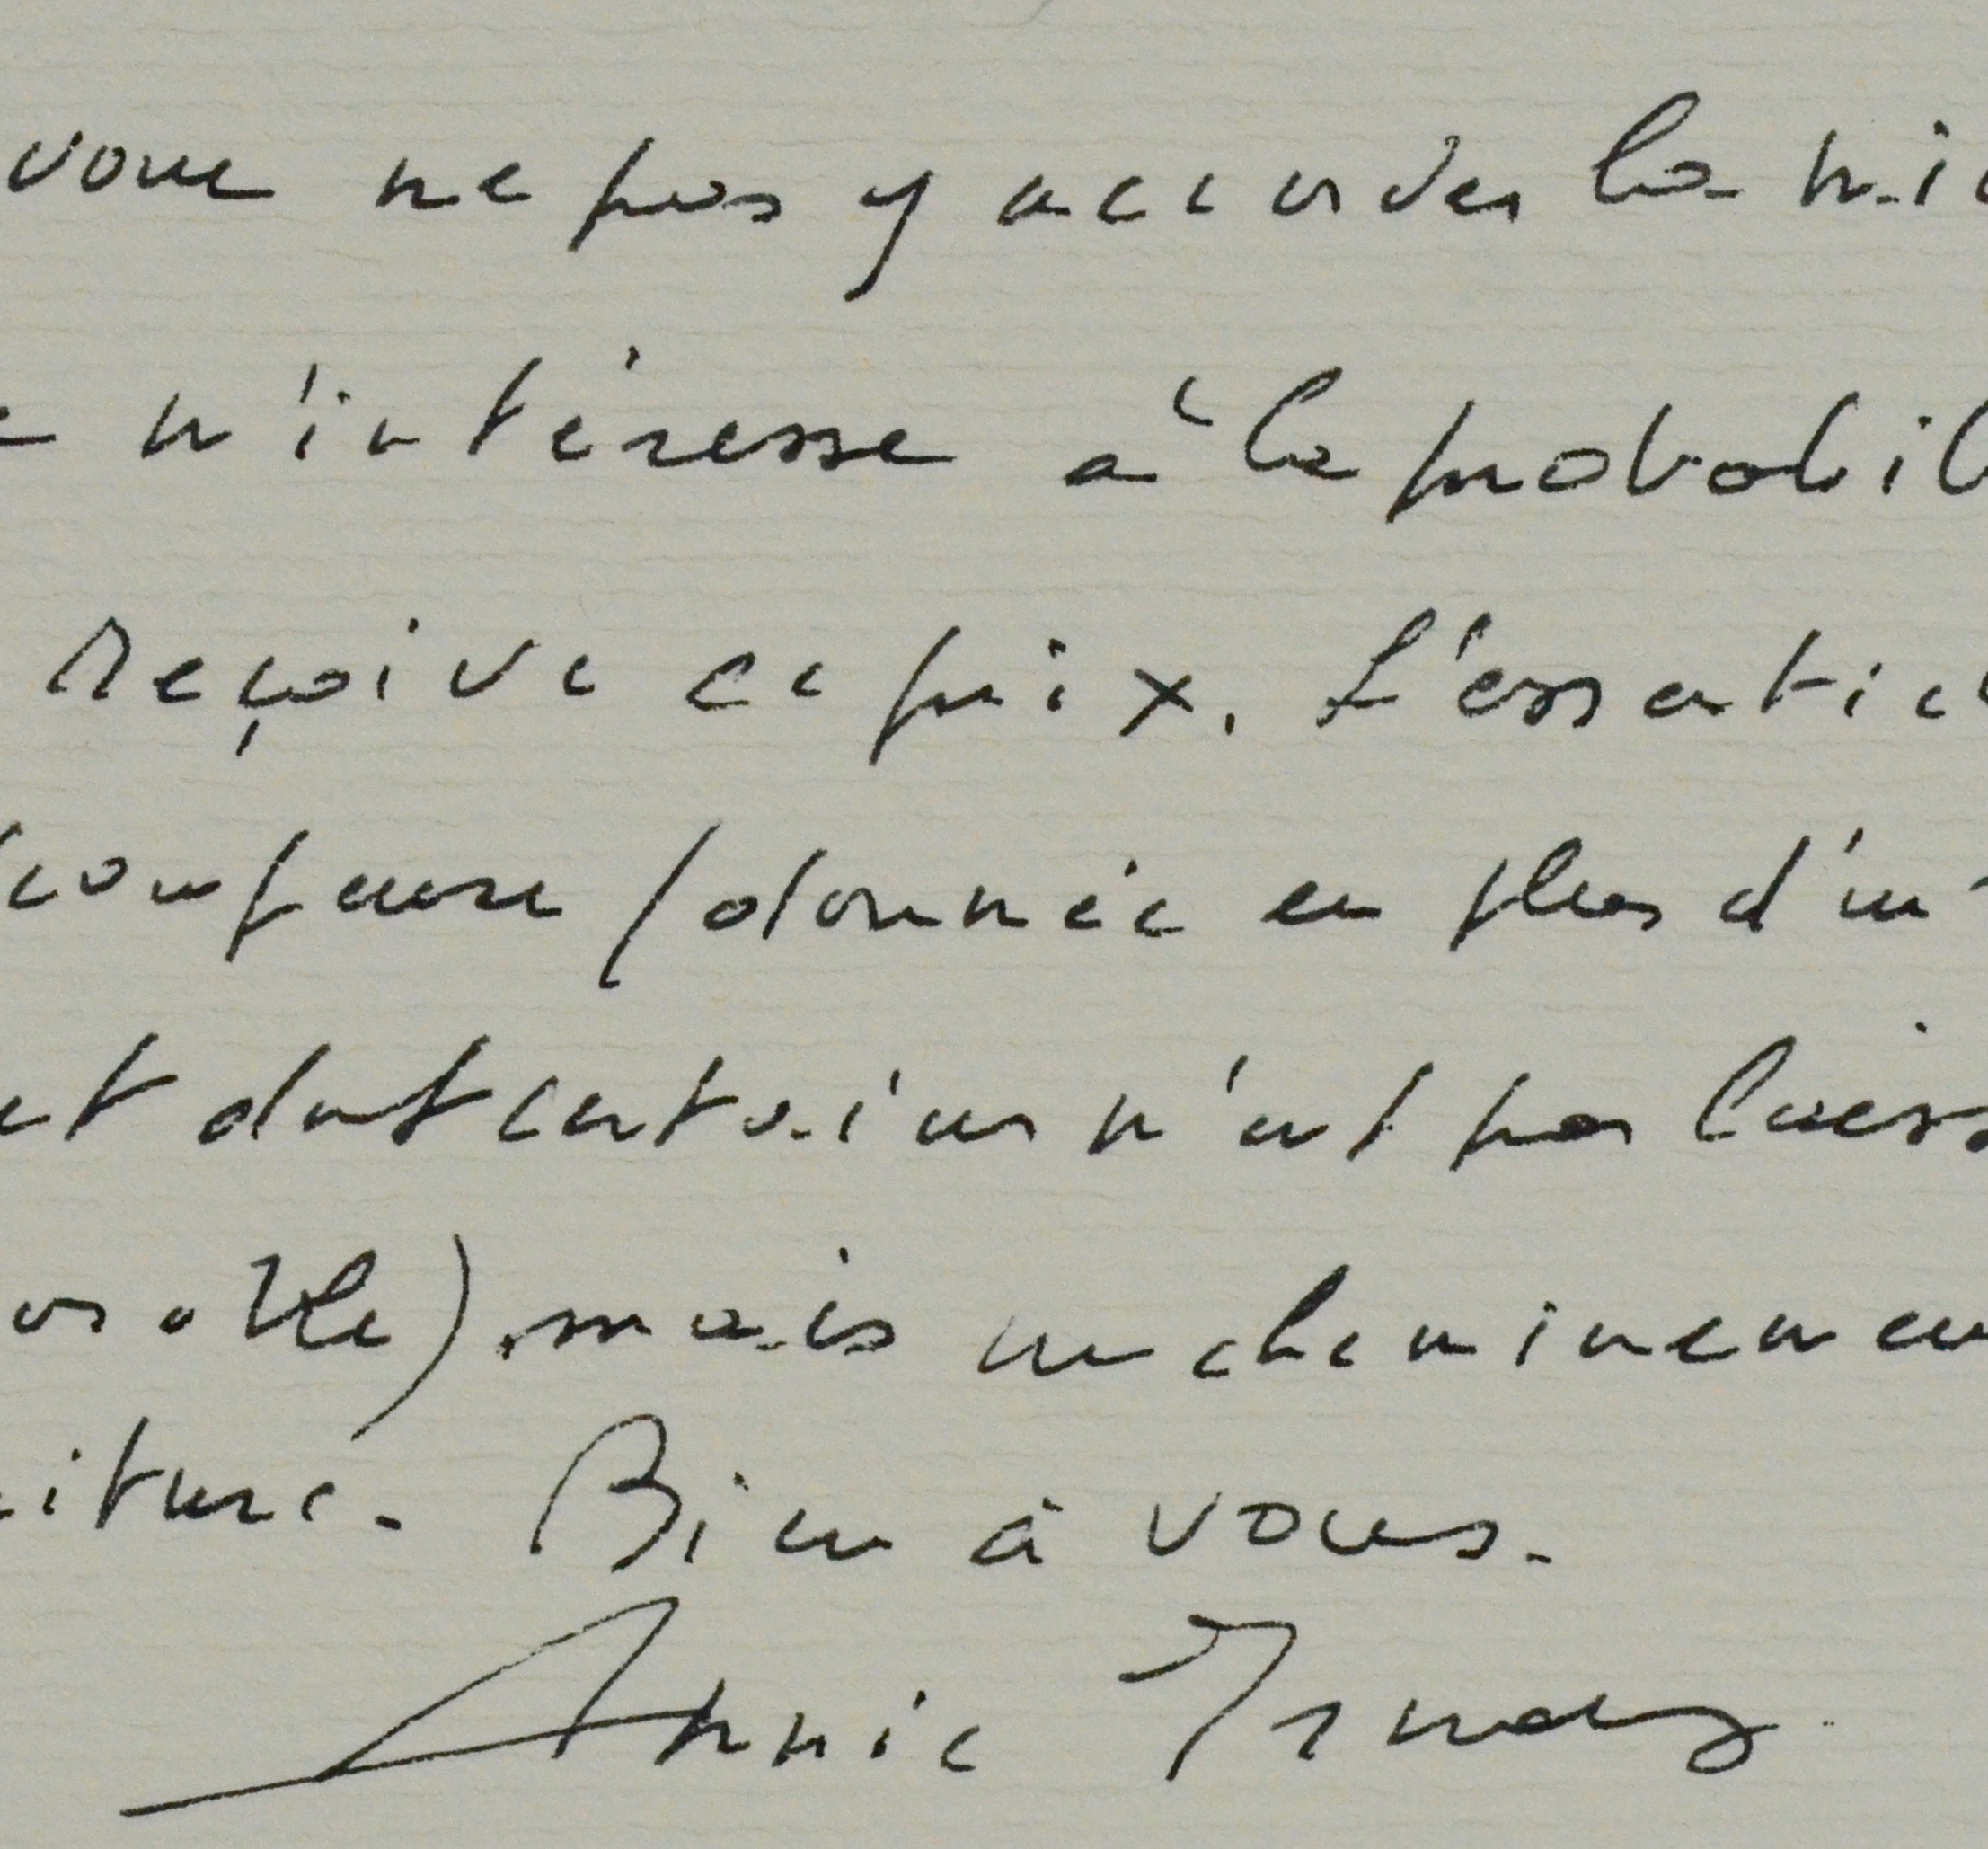 voue ne pas y accorder la mi
m'intéresse à la probabil
reçoive ce prix. L'essentiel
(donnée en plus d'un
et dont certains n'ont pas laiss
orable), mais un cheminemen
iture. Bien à vous.
Annie Ernaux